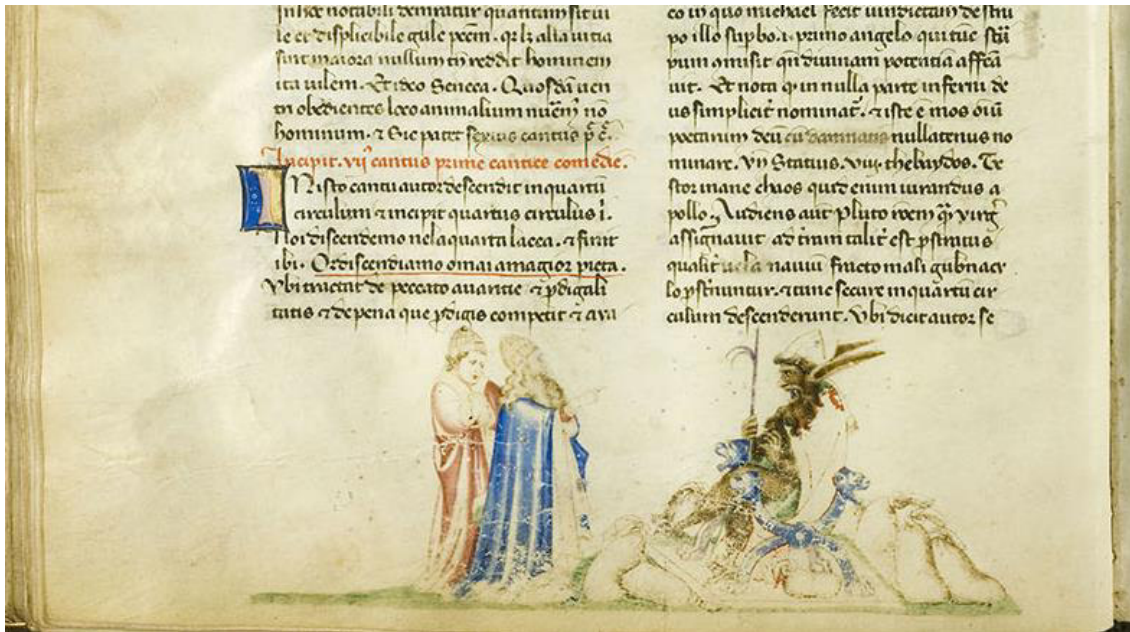 In hoc notabili demiratur quantam sit ui
le et displicibile gule pctm. qr lz alia uitia
sint maiora nullum tn reddit hominem
ita uilem. Et ideo Seneca. Quosdã uen
tri obedientes loco animalium nũem nõ
hominum. & Sic patet sextus cantus p̃ c̃.
Incipit. vii cantus prime cantice comedie.
IN isto cantu autor descendit in quartũ
circulum & incipit quartus circulus i.
Noi discendemo nela quarta lacca. & finit
ibi. Or discendiamo omai a magior pieta.
Vbi tractat de peccato auaritie & pdigali
tatis & de pena que pdigis competit & aua
eo in quo michael fecit uindictam de stru
po illo supbo. i. primo angelo qui tuc
pum amisit qñ diuinam potentia affcã
uit. Et nota q in nulla parte inferni de
us simplicit nominat. & iste e mos oiũ
poetarum deũ cũ damnatis nullatenus no
minare. Vñ Statius. viii. thebaydos. Te
stor inane chaos quid enim iurandus a
pollo. Audiens aut Pluto
assignauit ad talit est pstratus
qualit uela nauiũ fracto mali gubnacr
lo pstruuntur. & tunc secure in quartũ cir
culum descenderunt. Vbi dicit autor se